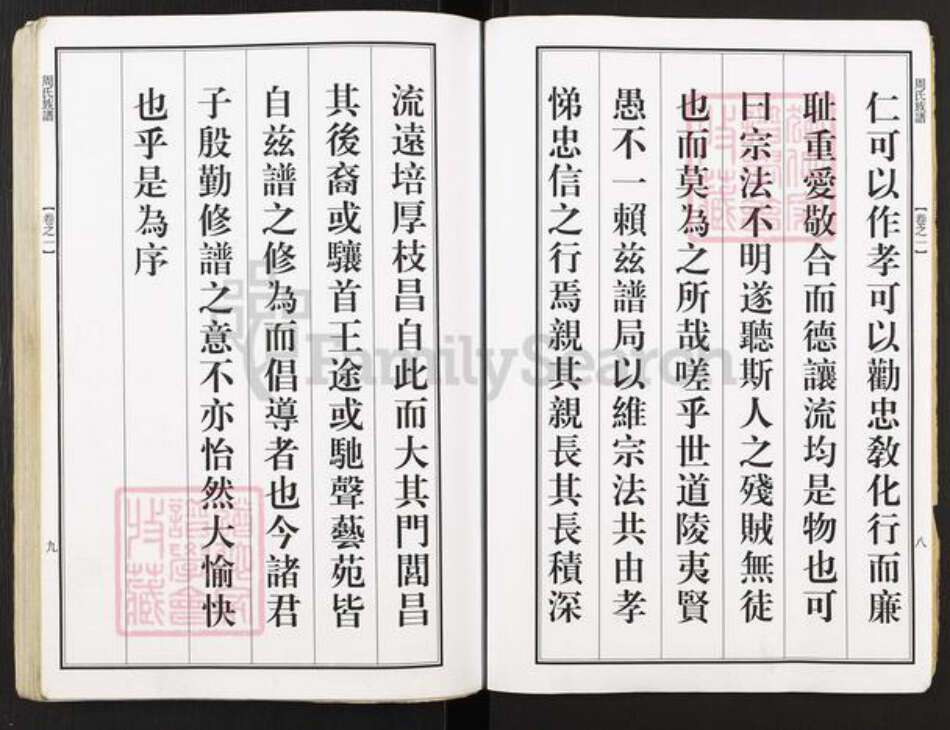 周氏族譜
【卷之一】
八
仁可以作孝可以勸忠敎化行而廉
耻重愛敬合而德讓流均是物也可
曰宗法不明遂聽斯人之殘賊無徒
也而莫為之所哉嗟乎世道陵夷賢
愚不一賴兹譜局以維宗法共由孝
悌忠信之行焉親其親長其長積深
流遠培厚枝昌自此而大其門閭昌
其後裔或驤首王途或馳聲藝苑皆
自兹譜之修為而倡導者也今諸君
子殷勤修譜之意不亦怡然大愉快
也乎是為序
周氏族譜
【卷之一】
九
FamilySearch